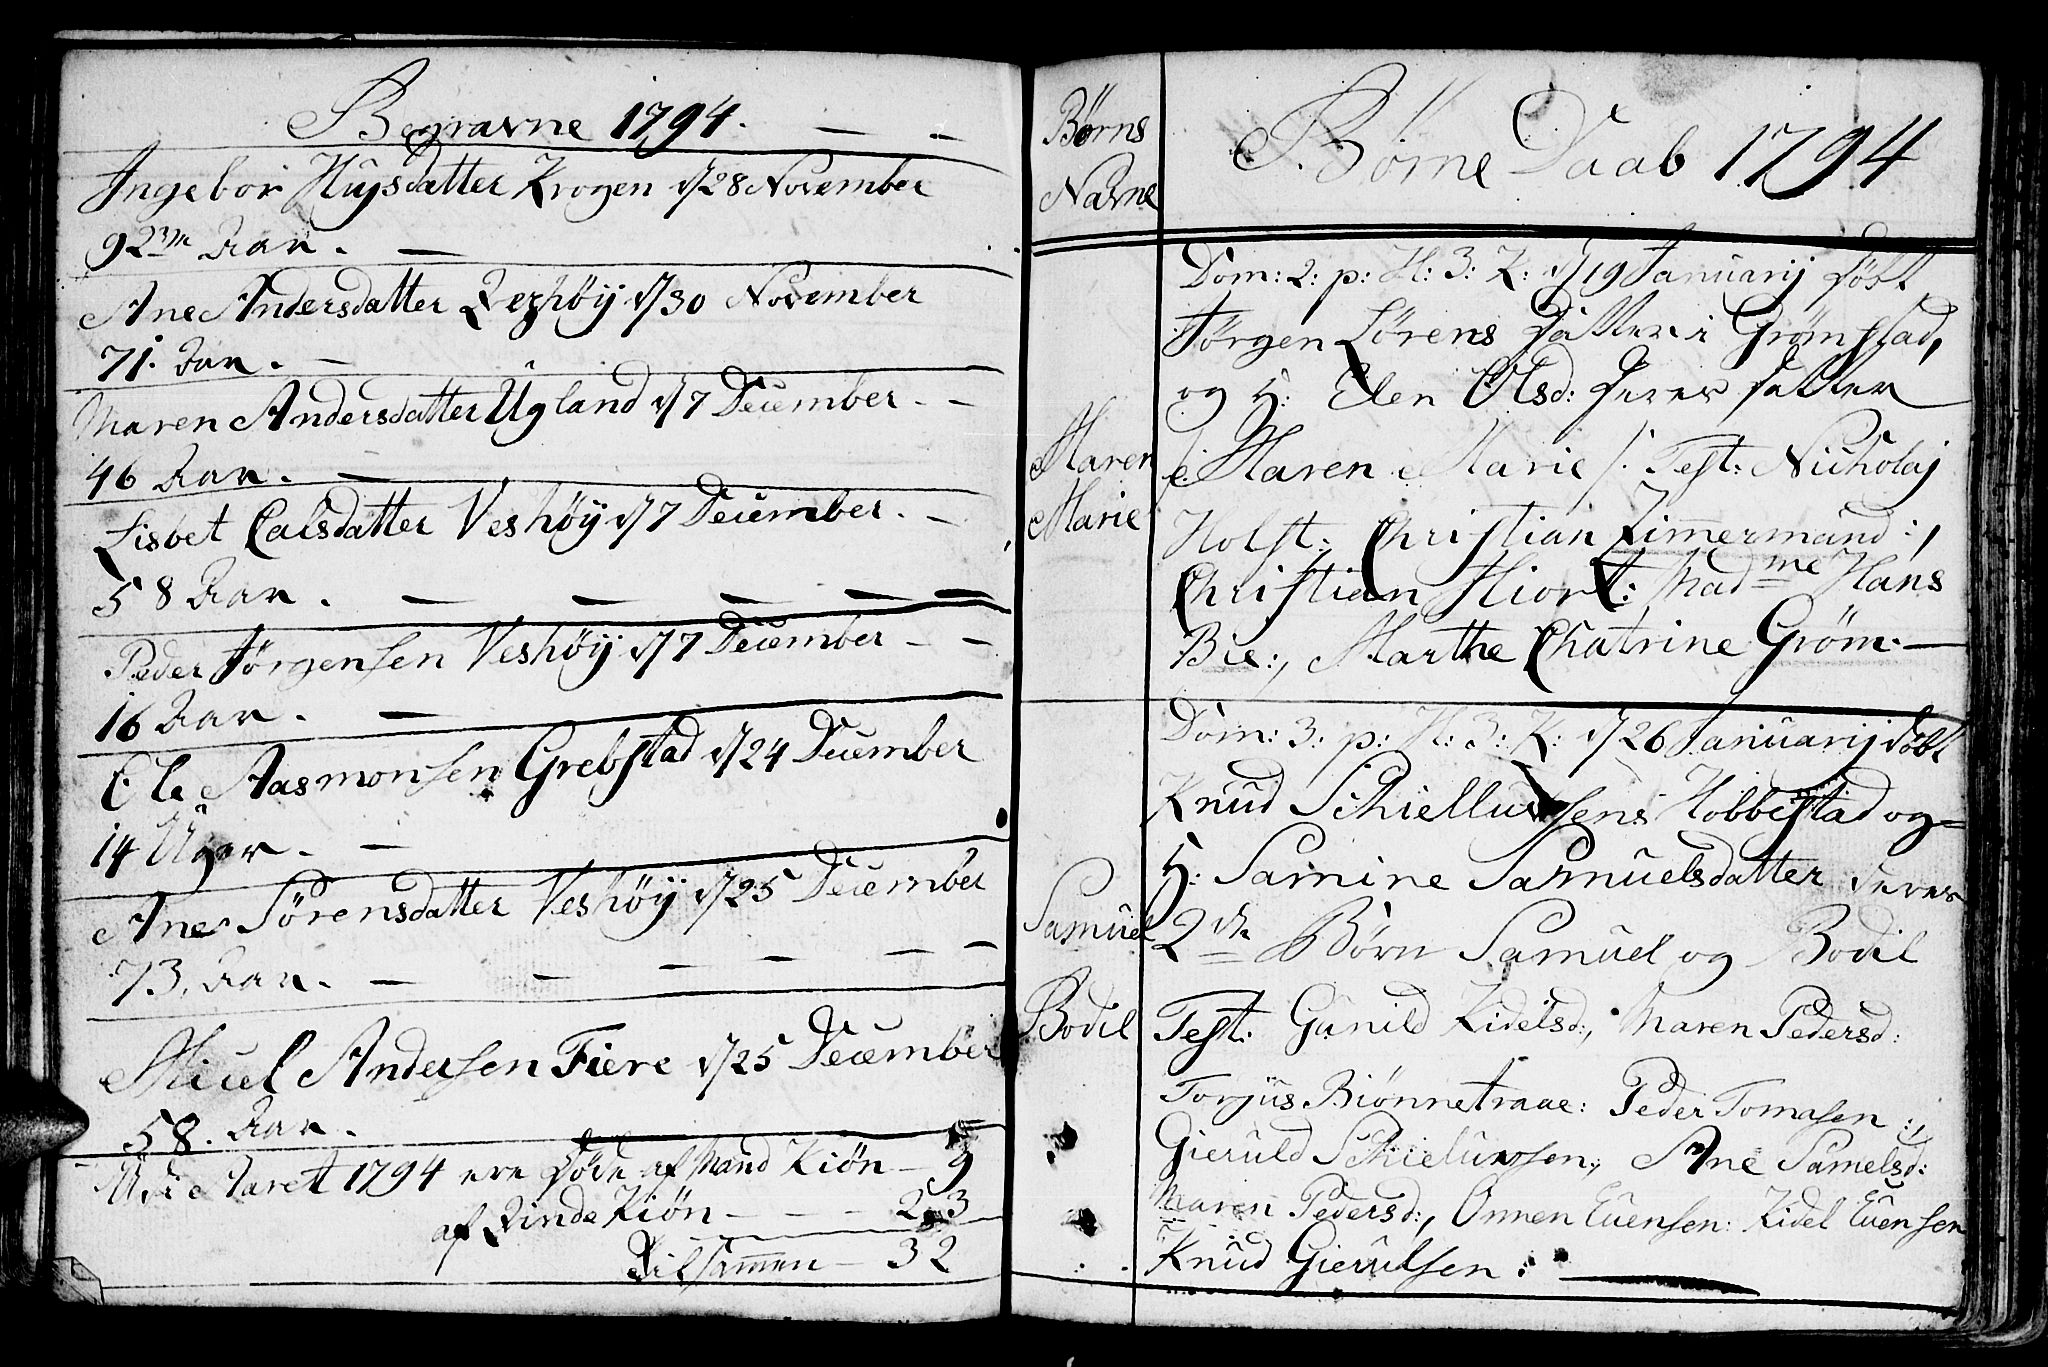 Begravne 1794.
Ingebor Huysdatter Krogen d/28 November
92 Aar.
Ane Andersdatter Veshöÿ d/30 November
71. Aar.
Maren Andersdatter Ugland d/7 December
46 Aar.
Lisbet Calsdatter Veshöÿ d/7 December.
58 Aar.
Peder Jörgensen Veshöÿ d/7 December
16 Aar.
Ole Aasmonsen Grebstad d/24 December
14 Uger.
Ane Sörensdatter Veshöÿ d/25 December
73. Aar.
Micel Andersen Fiere d/25 December
58. Aar.
Udi Aaret 1794 ere Döde af Mand Kiön — 9
af Qinde Kiön - - - 23
Tilsammen — 32
Börns
Navne
Börne Daab 1794
Dom: 2: p: H: 3: K: d/19 Januarij döbt
Jörgen Sörens Datter i Grömstad,
og H: Elen Olsd: Deres Datter
Maren
/: Maren Marie /. Test: Nicholaj
Marie
Holst: Christian Zimermand:,
Christian Hiort: Madme Hans
Bie:, Marthe Chatrine Gröm. —
Dom: 3: p: H: 3: K: d/26 Januarij döbt
Knud Schiellusens Hobbestad og
H: Samine Samuelsdatter deres
Samuel
2de Börn Samuel og Bodil
Bodil
Test: Gunild Kidelsd:, Maren Pedersd:
Torjus Biönnetraae: Peder Tomasen:,
Gieruld Schielussen, Ane Samelsd:
Maren Pedersd:, Onnen Euensen: Kidel Euensen
Knud Gierulsen: